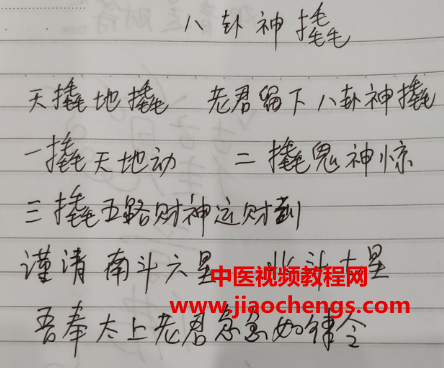 八卦神撬
天撬地撬 老君留下八卦神撬
一撬天地动 二撬鬼神惊
三撬五路财神运财到
谨清 南斗六星 北斗七星
中医视频教程网
www.jiaochengs.com
吾奉太上老君急急如律令